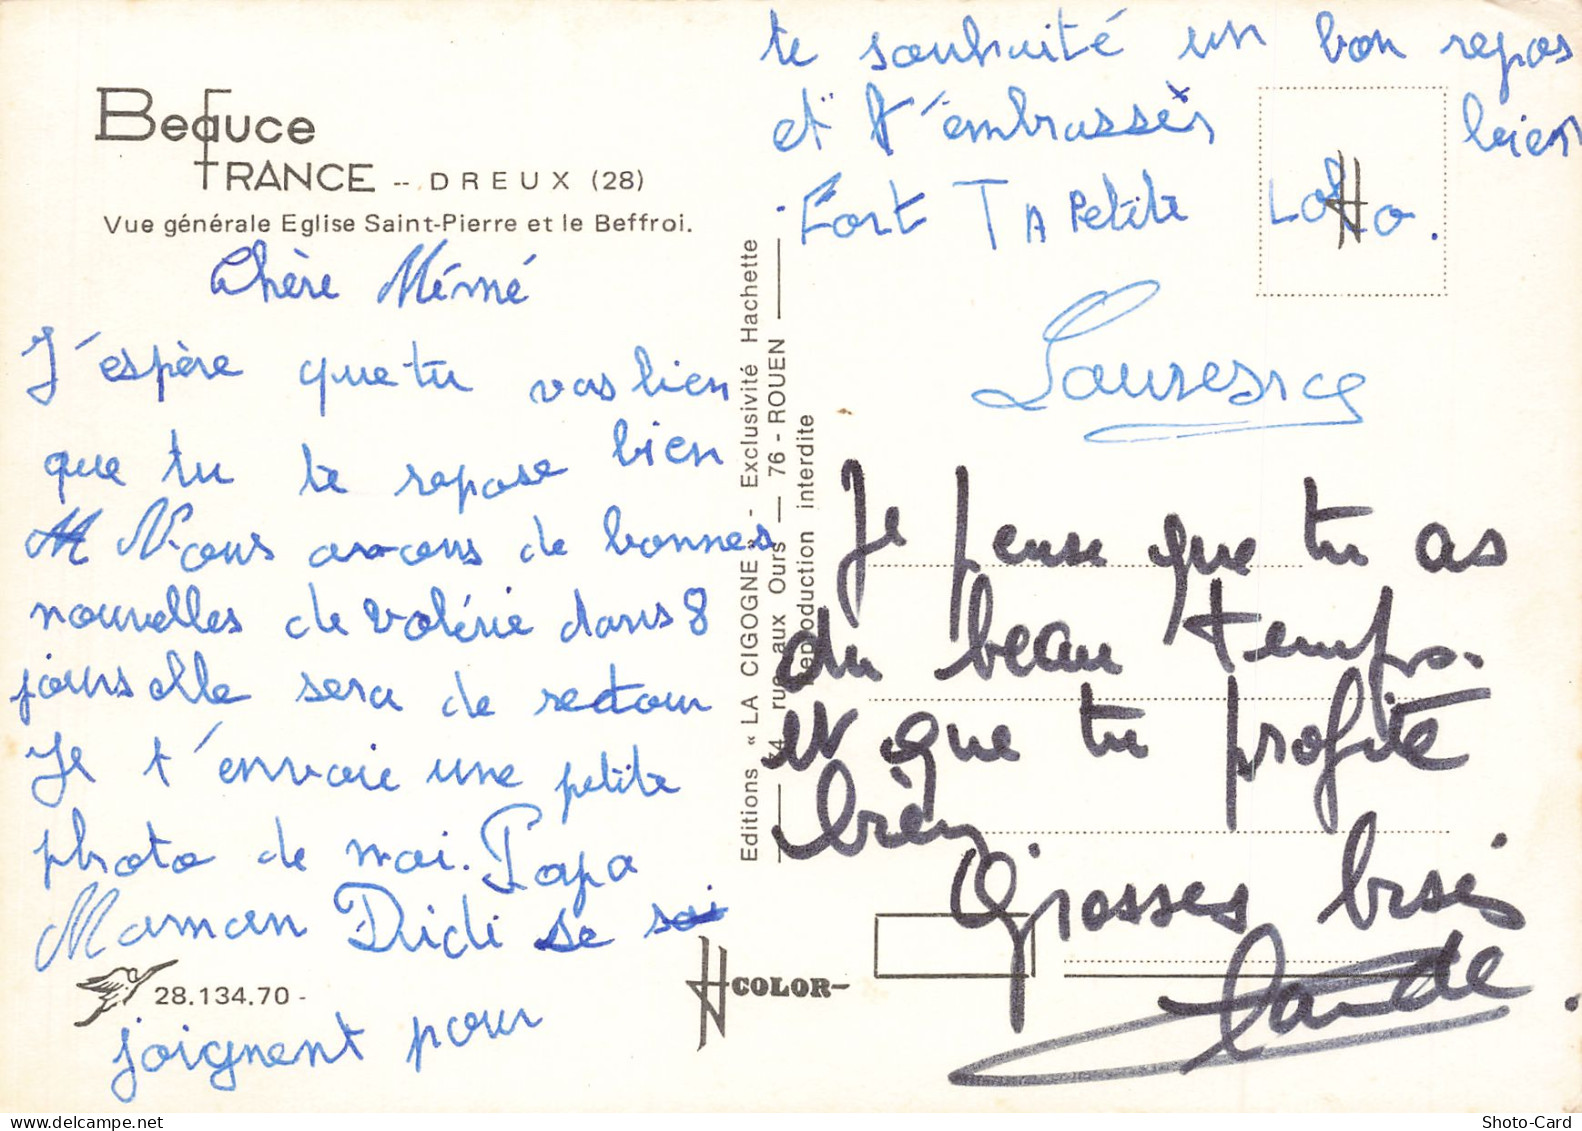 Beauce
FRANCE -- DREUX (28)
Vue générale Eglise Saint-Pierre et le Beffroi.
Chère Mémé
J'espère que tu vas bien
que tu te repose bien
Nous avons de bonnes
nouvelles de Valérie dans 8
jours elle sera de retour
Je t'envoie une petite
photo de moi. Papa
Maman Didi se
joignent pour
28.134.70 -
te souhaité un bon repos
et t'embrassés bien
Fort TA Petite LoLo.
Editions « LA CIGOGNE » - Exclusivité Hachette
74 rue aux Ours — 76 - ROUEN
Reproduction interdite
Je pense que tu as
du beau temps.
et que tu profite
bien
Grosses bises
COLOR
Shoto-Card